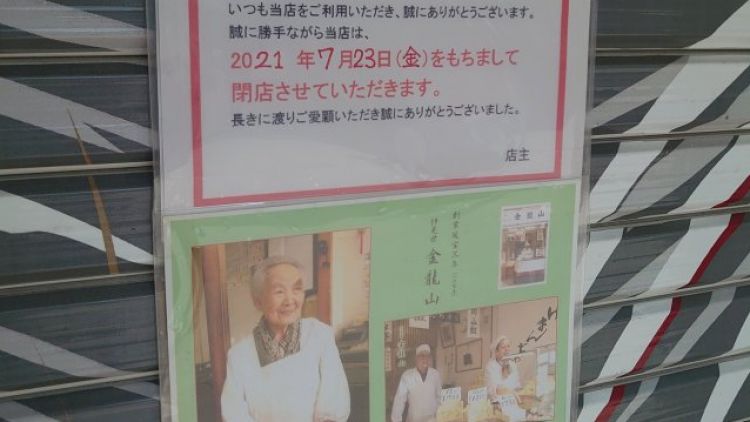 いつも当店をご利用いただき、誠にありがとうございます。
誠に勝手ながら当店は、
2021 年 7月23日(金)をもちまして
閉店させていただきます。
長きに渡りご愛顧いただき誠にありがとうございました。
店主
金龍山
金龍山